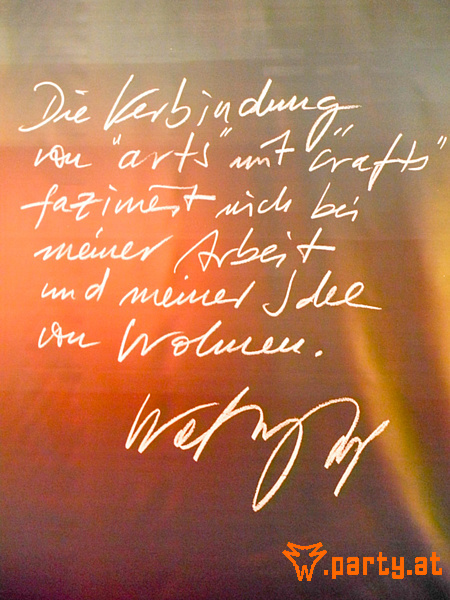 Die Verbindung
von "arts" mit "crafts"
faziniert mich bei
meiner Arbeit
und meiner Idee
von Wohnen.
W.party.at